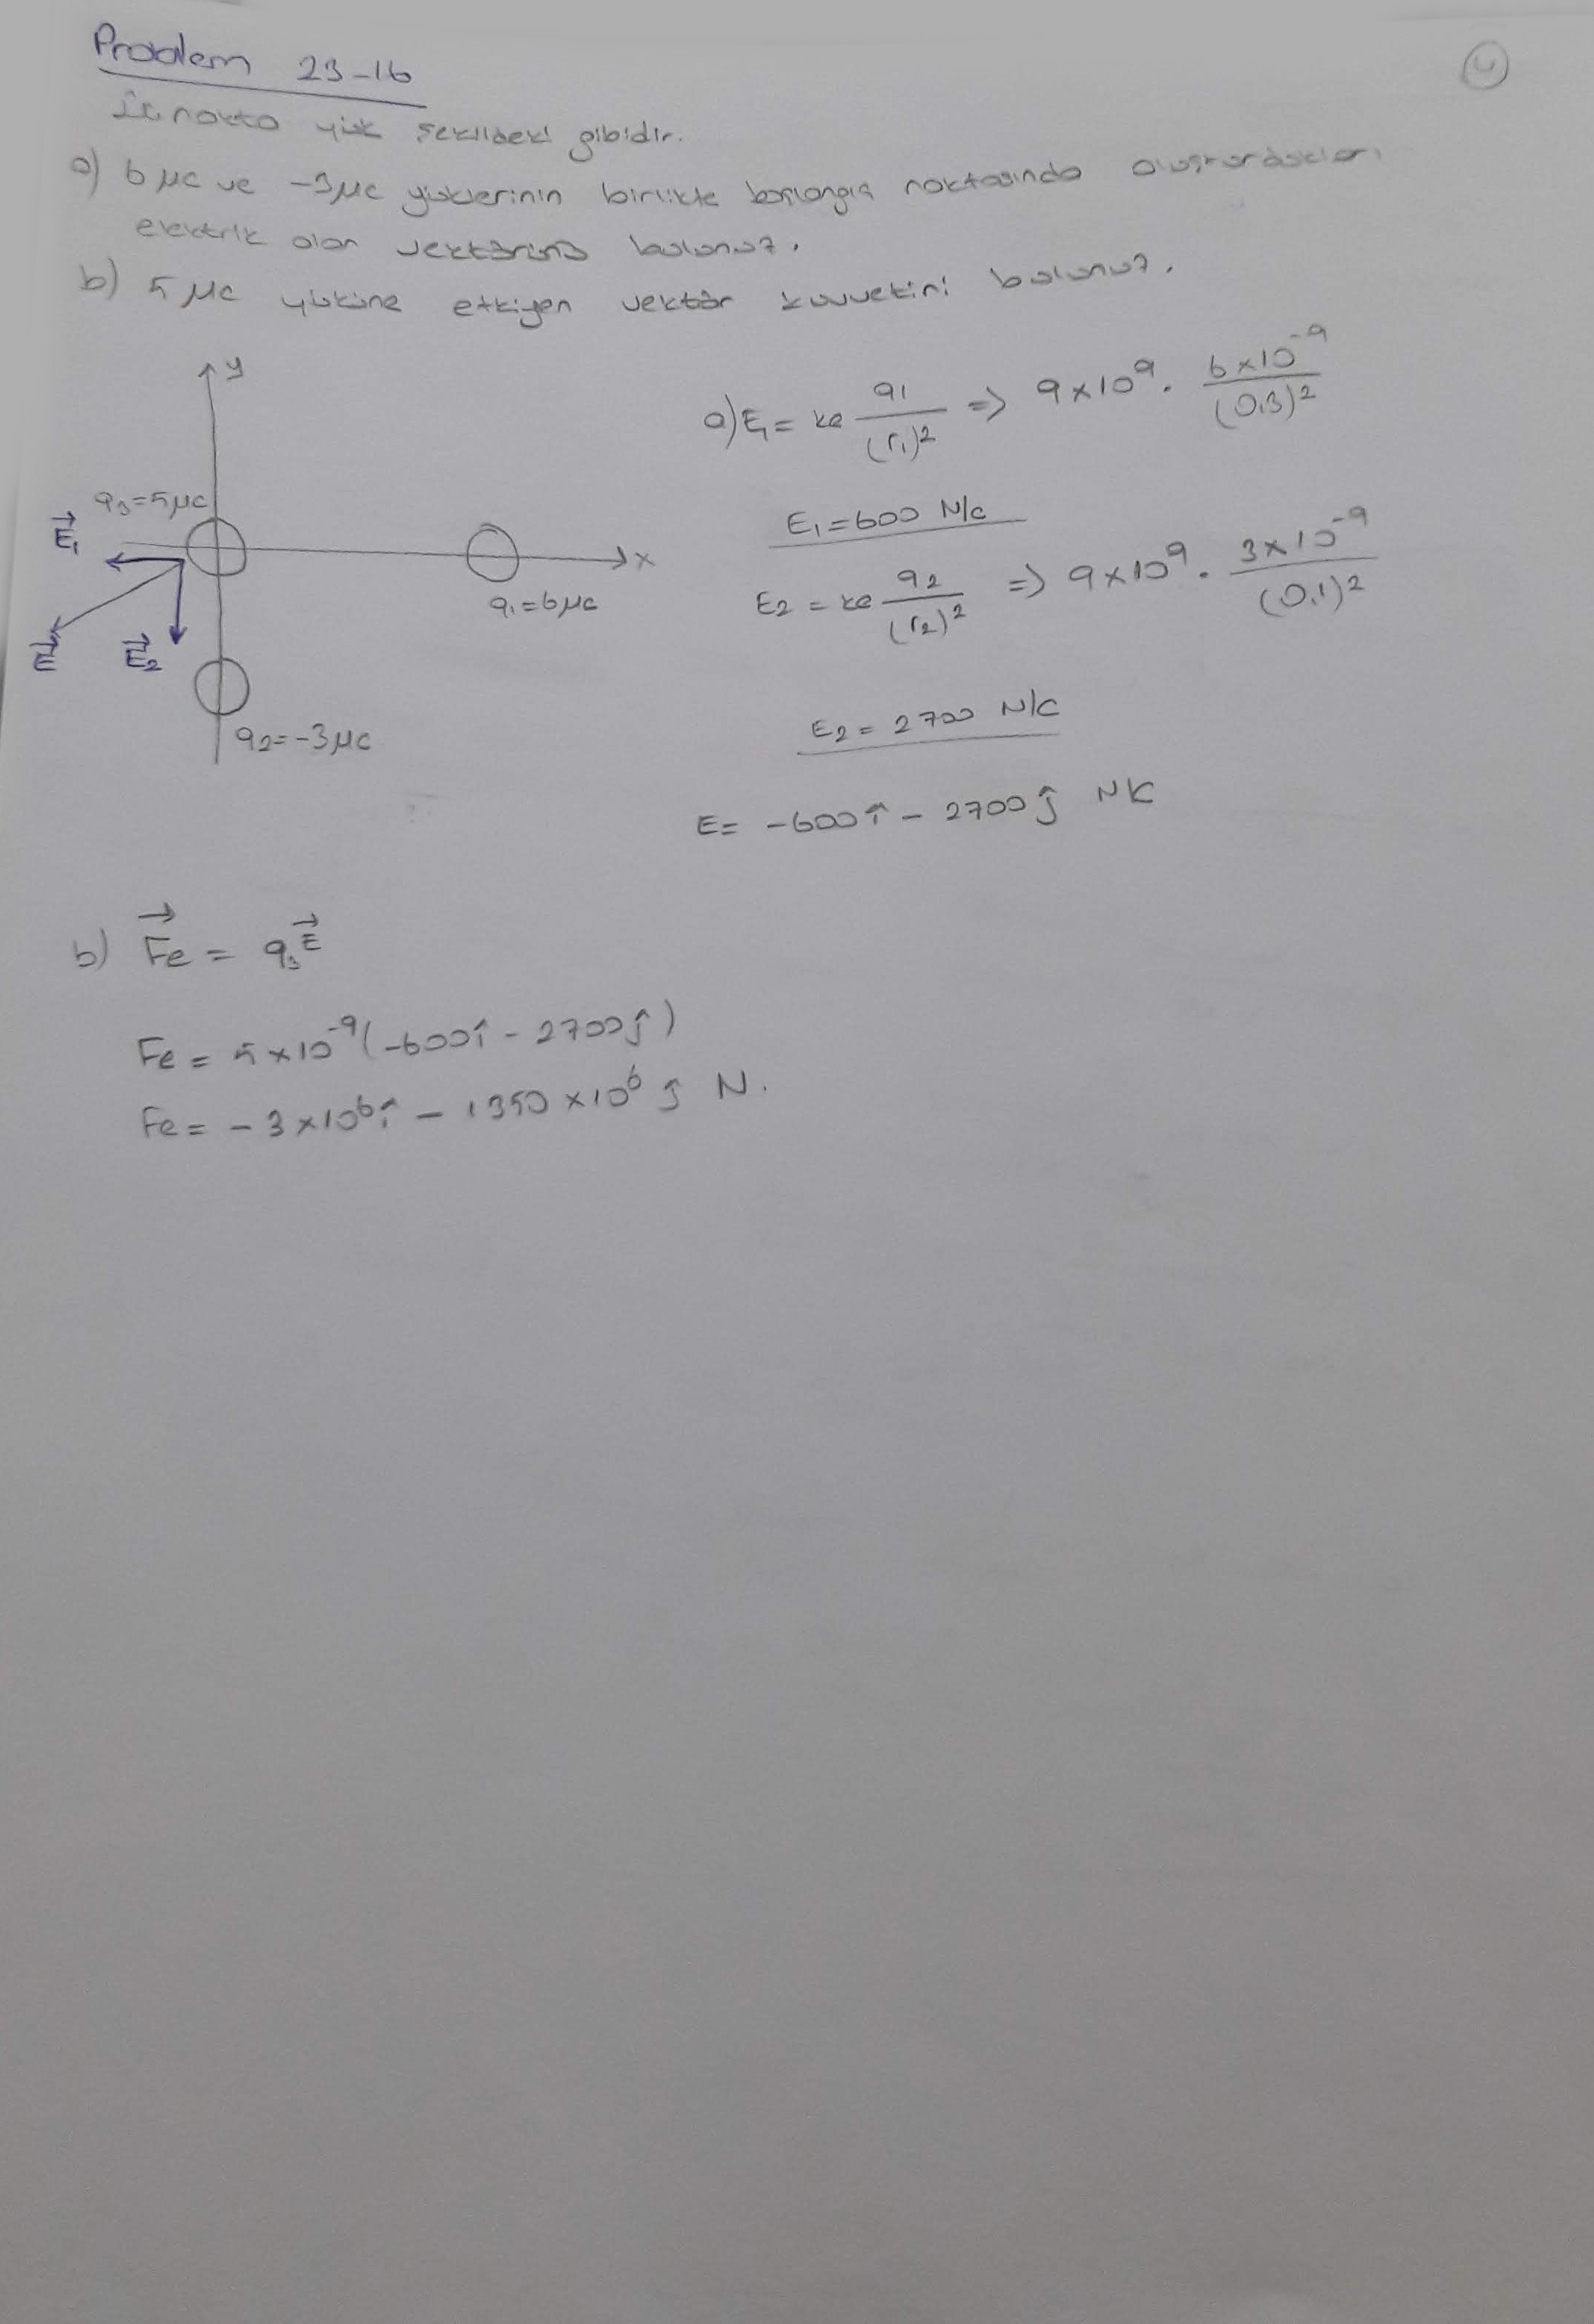 Problem 23-16
4
Üç nokta yük şekildeki gibidir.
a) 6 μc ve -3μc yüklerinin birlikte başlangıç noktasında oluşturdukları
elektrik alan vektörünü bulunuz.
b) 5 μc yüküne etkiyen vektör kuvvetini bulunuz.
y
x
q₃=5μc
q₁=6μc
q₂=-3μc
E⃗₁
E⃗
E⃗₂
a) E₁ = ke q₁/(r₁)² => 9x10⁹ . 6x10⁻⁹/(0,3)²
E₁=600 N/c
E₂ = ke q₂/(r₂)² => 9x10⁹ . 3x10⁻⁹/(0,1)²
E₂ = 2700 N/c
E= -600î - 2700ĵ N/c
b) F⃗e = q₃E⃗
Fe = 5x10⁻⁹(-600î - 2700ĵ)
Fe = -3x10⁶î - 1350x10⁶ĵ N.